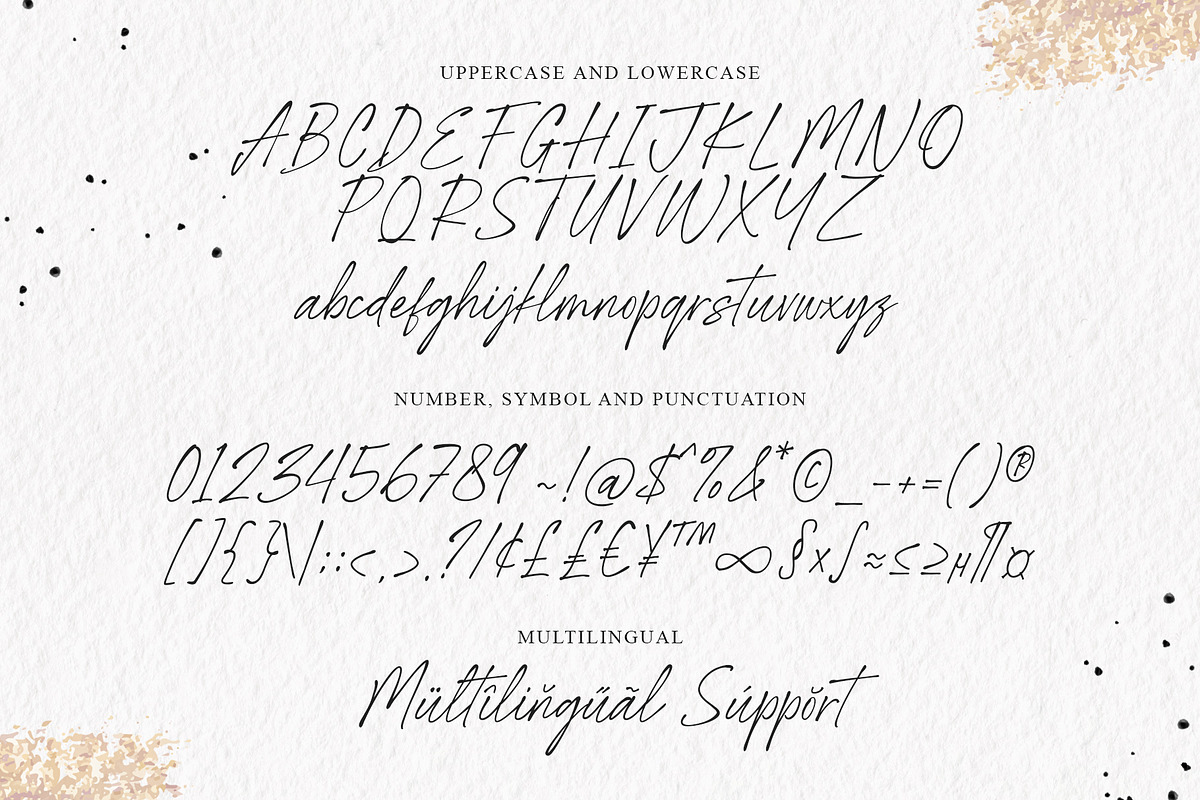 UPPERCASE AND LOWERCASE
ABCDEFGHIJKLMNO
PQRSTUVWXYZ
abcdefghijklmnopqrstuvwxyz
NUMBER, SYMBOL AND PUNCTUATION
0123456789 ~!@$^%&*©_-+=()®
[]{}\|;:<,>.?/¢£₤€¥™∞§x∫≈≤≥µ¶¤
MULTILINGUAL
Mültîliňgűãl Súppŏrt